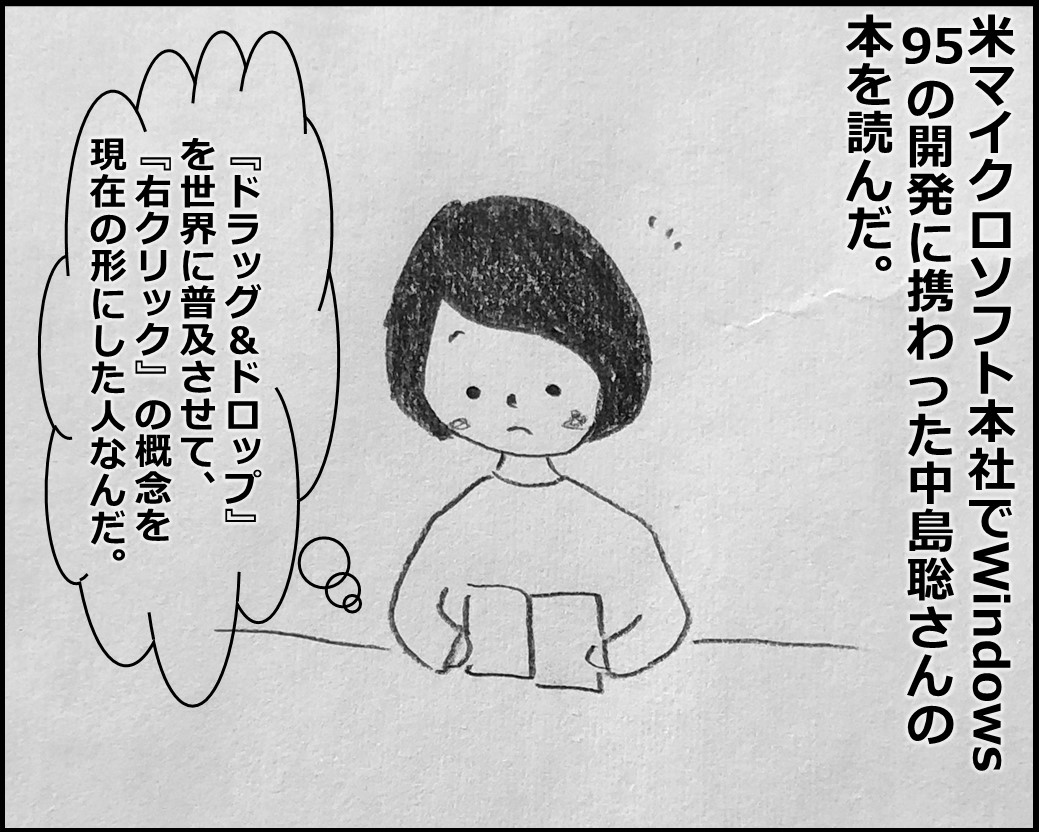 米マイクロソフト本社でWindows
95の開発に携わった中島聡さんの
本を読んだ。
『ドラッグ&ドロップ』
を世界に普及させて、
『右クリック』の概念を
現在の形にした人なんだ。